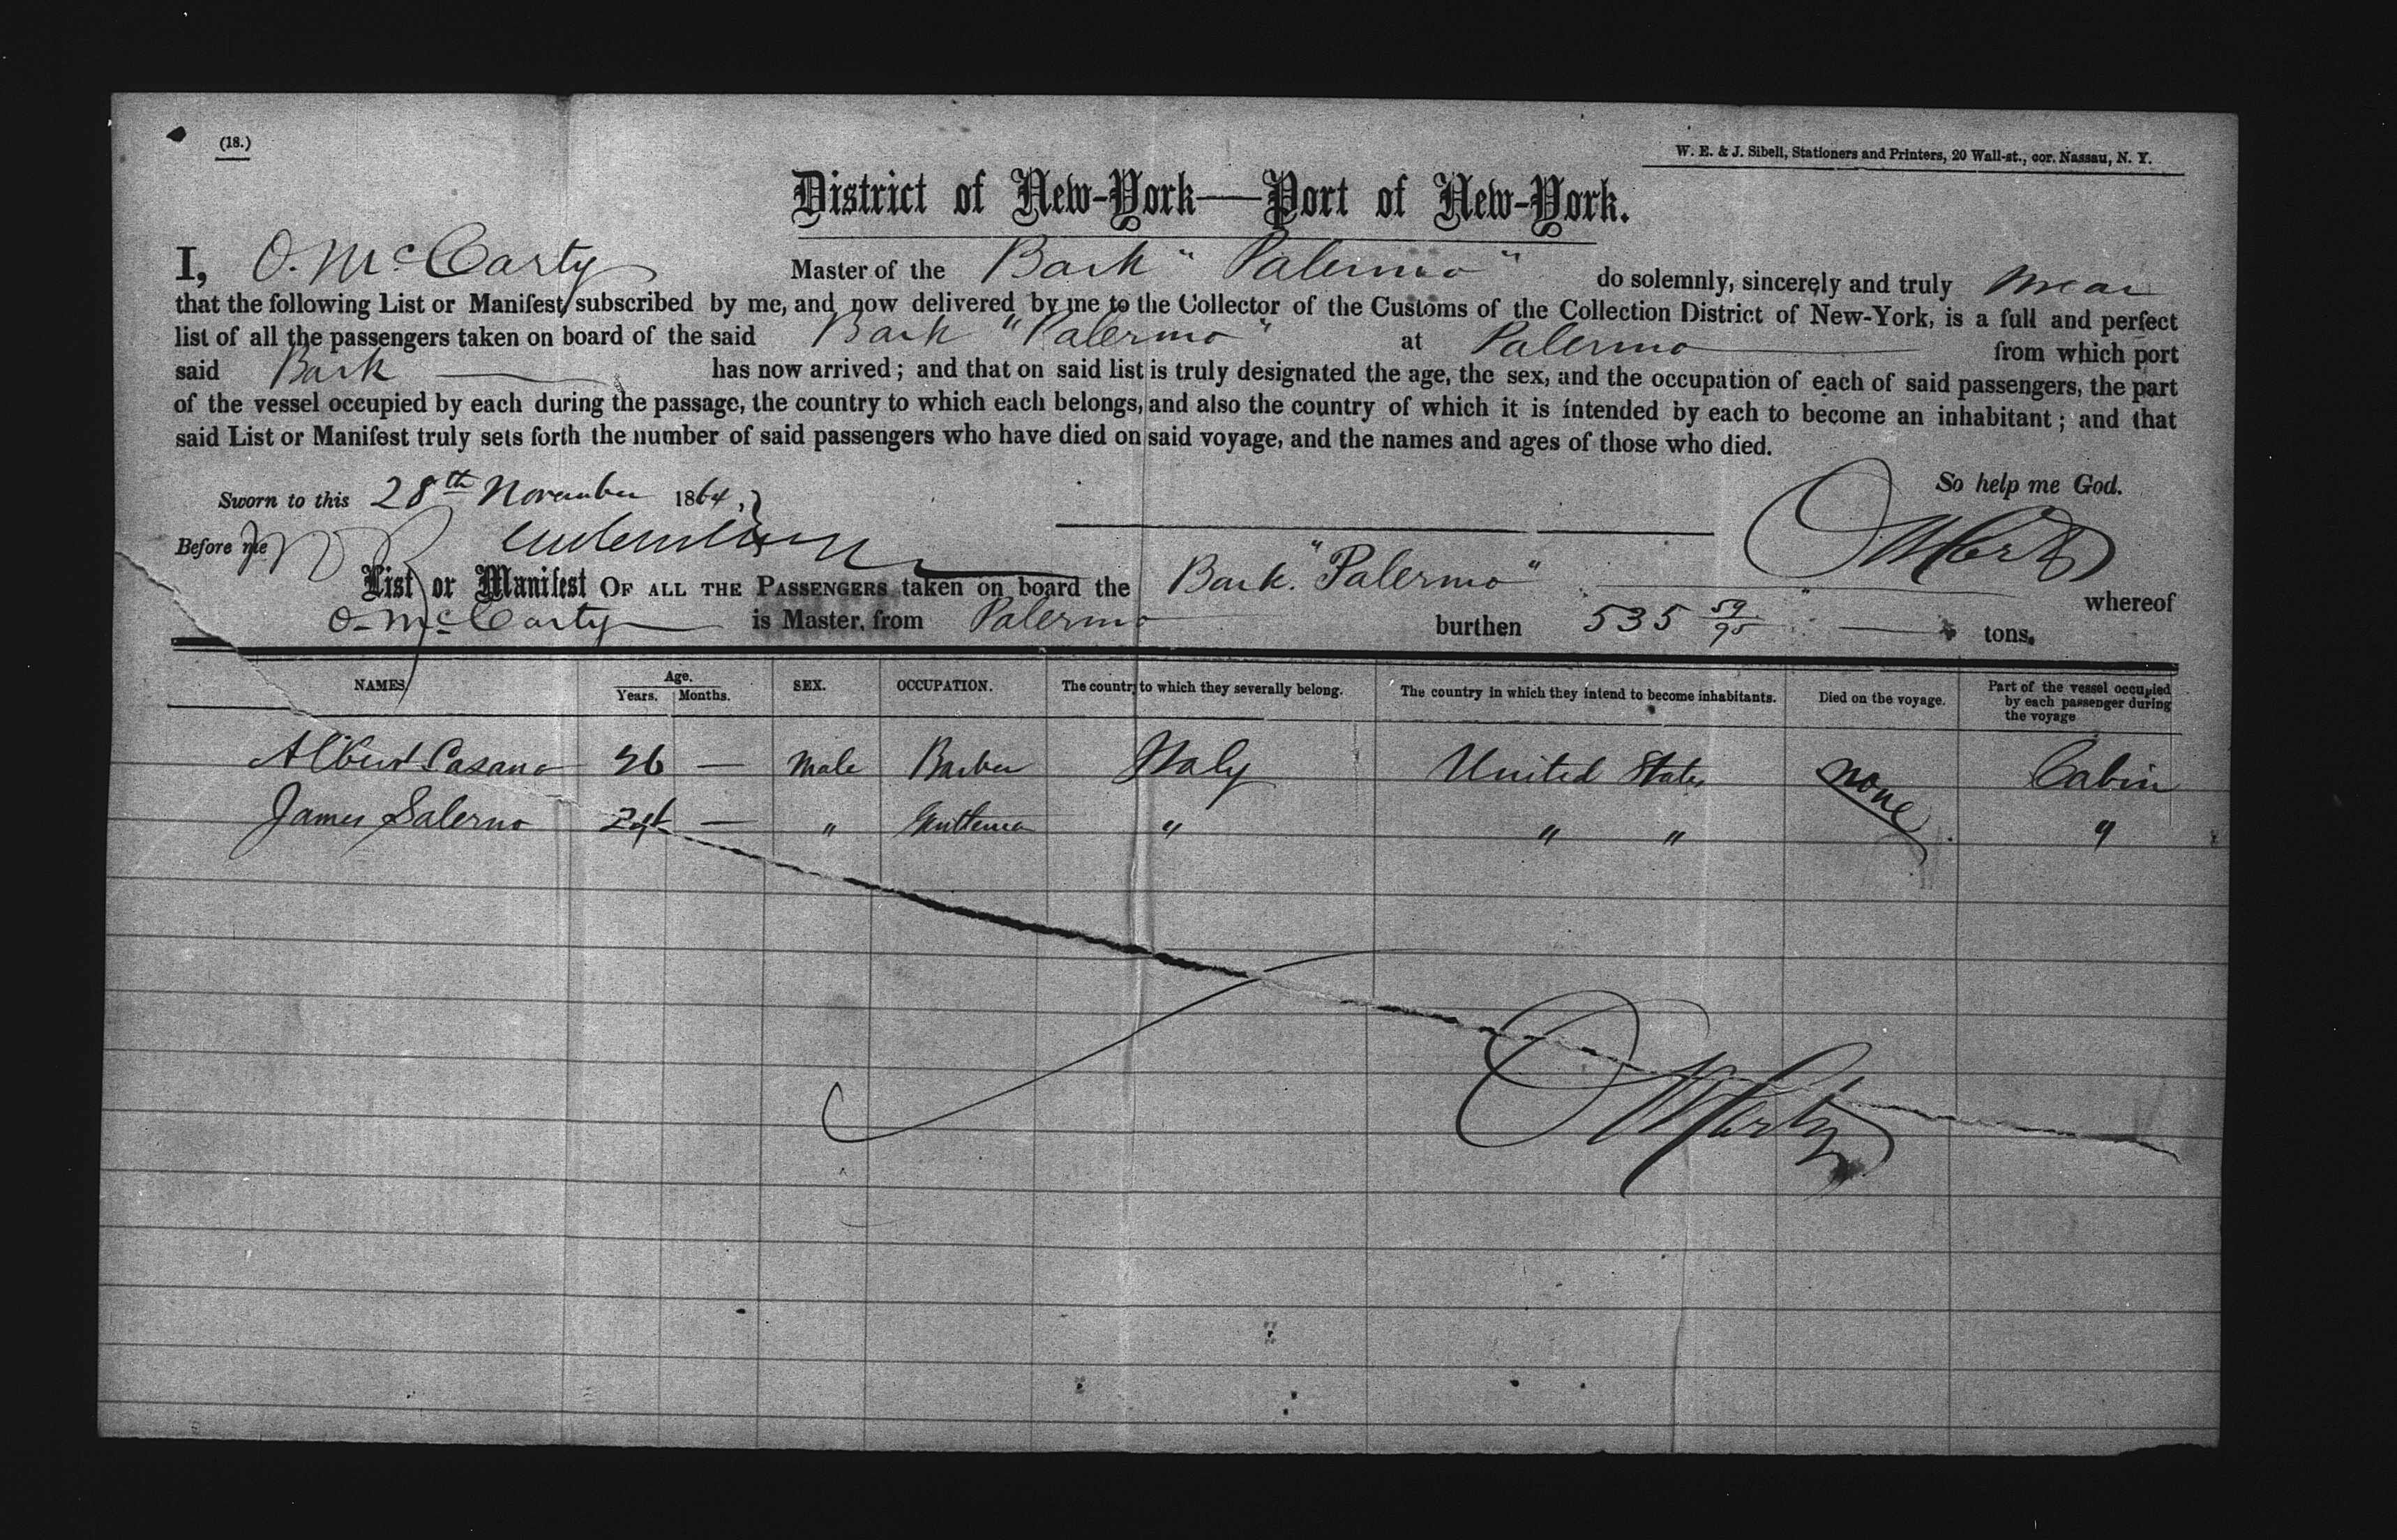 (18.)
W. E. & J. Sibell, Stationers and Printers, 20 Wall-st., cor. Nassau, N. Y.
District of New-York—Port of New-York.
I, O. McCarty Master of the Bark "Palermo" do solemnly, sincerely and truly swear
that the following List or Manifest subscribed by me, and now delivered by me to the Collector of the Customs of the Collection District of New-York, is a full and perfect
list of all the passengers taken on board of the said Bark "Palermo" at Palermo from which port
said Bark has now arrived; and that on said list is truly designated the age, the sex, and the occupation of each of said passengers, the part
of the vessel occupied by each during the passage, the country to which each belongs, and also the country of which it is intended by each to become an inhabitant; and that
said List or Manifest truly sets forth the number of said passengers who have died on said voyage, and the names and ages of those who died.
So help me God.
Sworn to this 28th November 1864,
Before me
O McCarty
List or Manifest OF ALL THE PASSENGERS taken on board the Bark "Palermo" whereof
O. McCarty is Master, from Palermo burthen 535 59/95 tons.
NAMES Age. Years. Months. SEX. OCCUPATION. The country to which they severally belong. The country in which they intend to become inhabitants. Died on the voyage. Part of the vessel occupied by each passenger during the voyage
Albert Casano 26 — Male Barber Italy United States none Cabin
James Salerno — " Gentleman " " " "
O McCarty